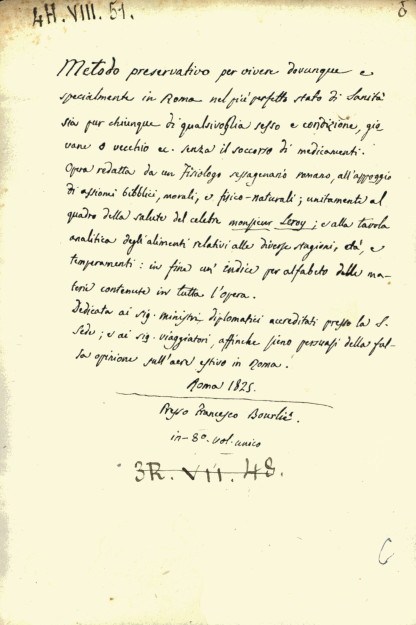 4H.VIII.51.
Metodo preservativo per vivere dovunque e
specialmente in Roma nel più perfetto stato di Sanità
sia pur chiunque di qualsivoglia sesso e condizione, gio
vane o vecchio ec. senza il soccorso di medicamenti.
Opera redatta da un fisiologo sessagenario romano, all'appoggio
di assiomi bibblici, morali, e fisico-naturali; unitamente al
quadro della salute del celebre monsieur Leroy; e alla tavola
analitica degli alimenti relativi alle diverse stagioni, età, e
temperamenti: in fine un' indice per alfabeto delle ma-
terie contenute in tutta l'opera.
Dedicata ai sig. ministri diplomatici accreditati presso la S.
Sede; e ai sig. viaggiatori, affinche sieno persuasi della fal-
sa opinione sull'aere estivo in Roma.
Roma 1825.
Presso Francesco Bourliè.
in-8º. vol. unico
3R.VII.48.